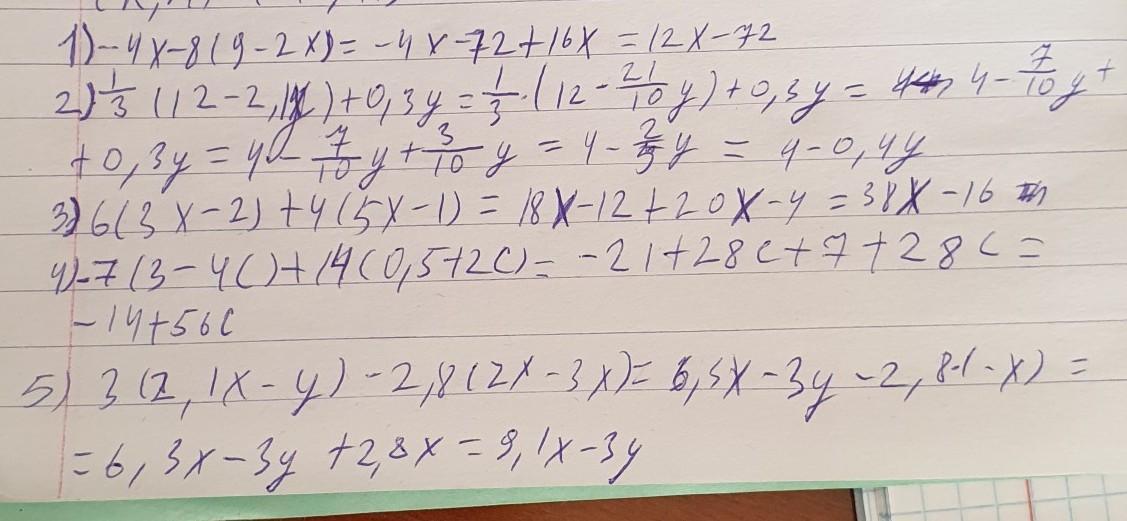 1) -4x-8(9-2x)=-4x-72+16x=12x-72
2) 1/3 (12-2,1y)+0,3y=1/3·(12-21/10y)+0,3y= 4-7/10y+
+0,3y=4-7/10y+3/10y=4-2/5y=4-0,4y
3) 6(3x-2)+4(5x-1)=18x-12+20x-4=38x-16
4) -7(3-4c)+14(0,5+2c)=-21+28c+7+28c=
-14+56c
5) 3(2,1x-y)-2,8(2x-3x)=6,3x-3y-2,8·(-x)=
=6,3x-3y+2,8x=9,1x-3y